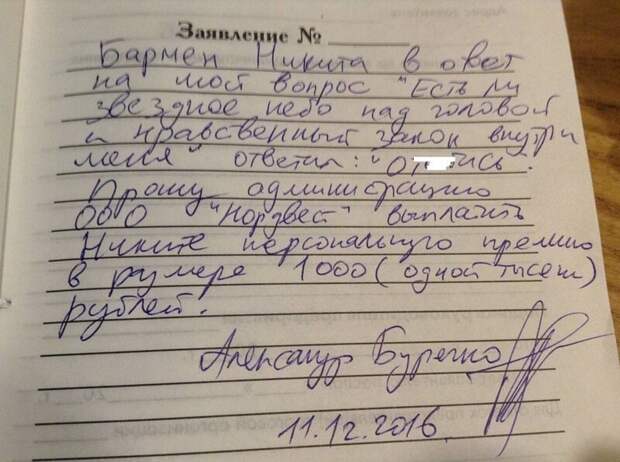 Заявление № ________
Бармен Никита в ответ
на мой вопрос "Есть ли
звездное небо над головой
и нравственный закон внутри
меня" ответил: "От  ись".
Прошу администрацию
ООО "Нордвест" выплатить
Никите персональную премию
в размере 1000 (одной тысячи)
рублей.
Александр Буренко
11.12.2016.